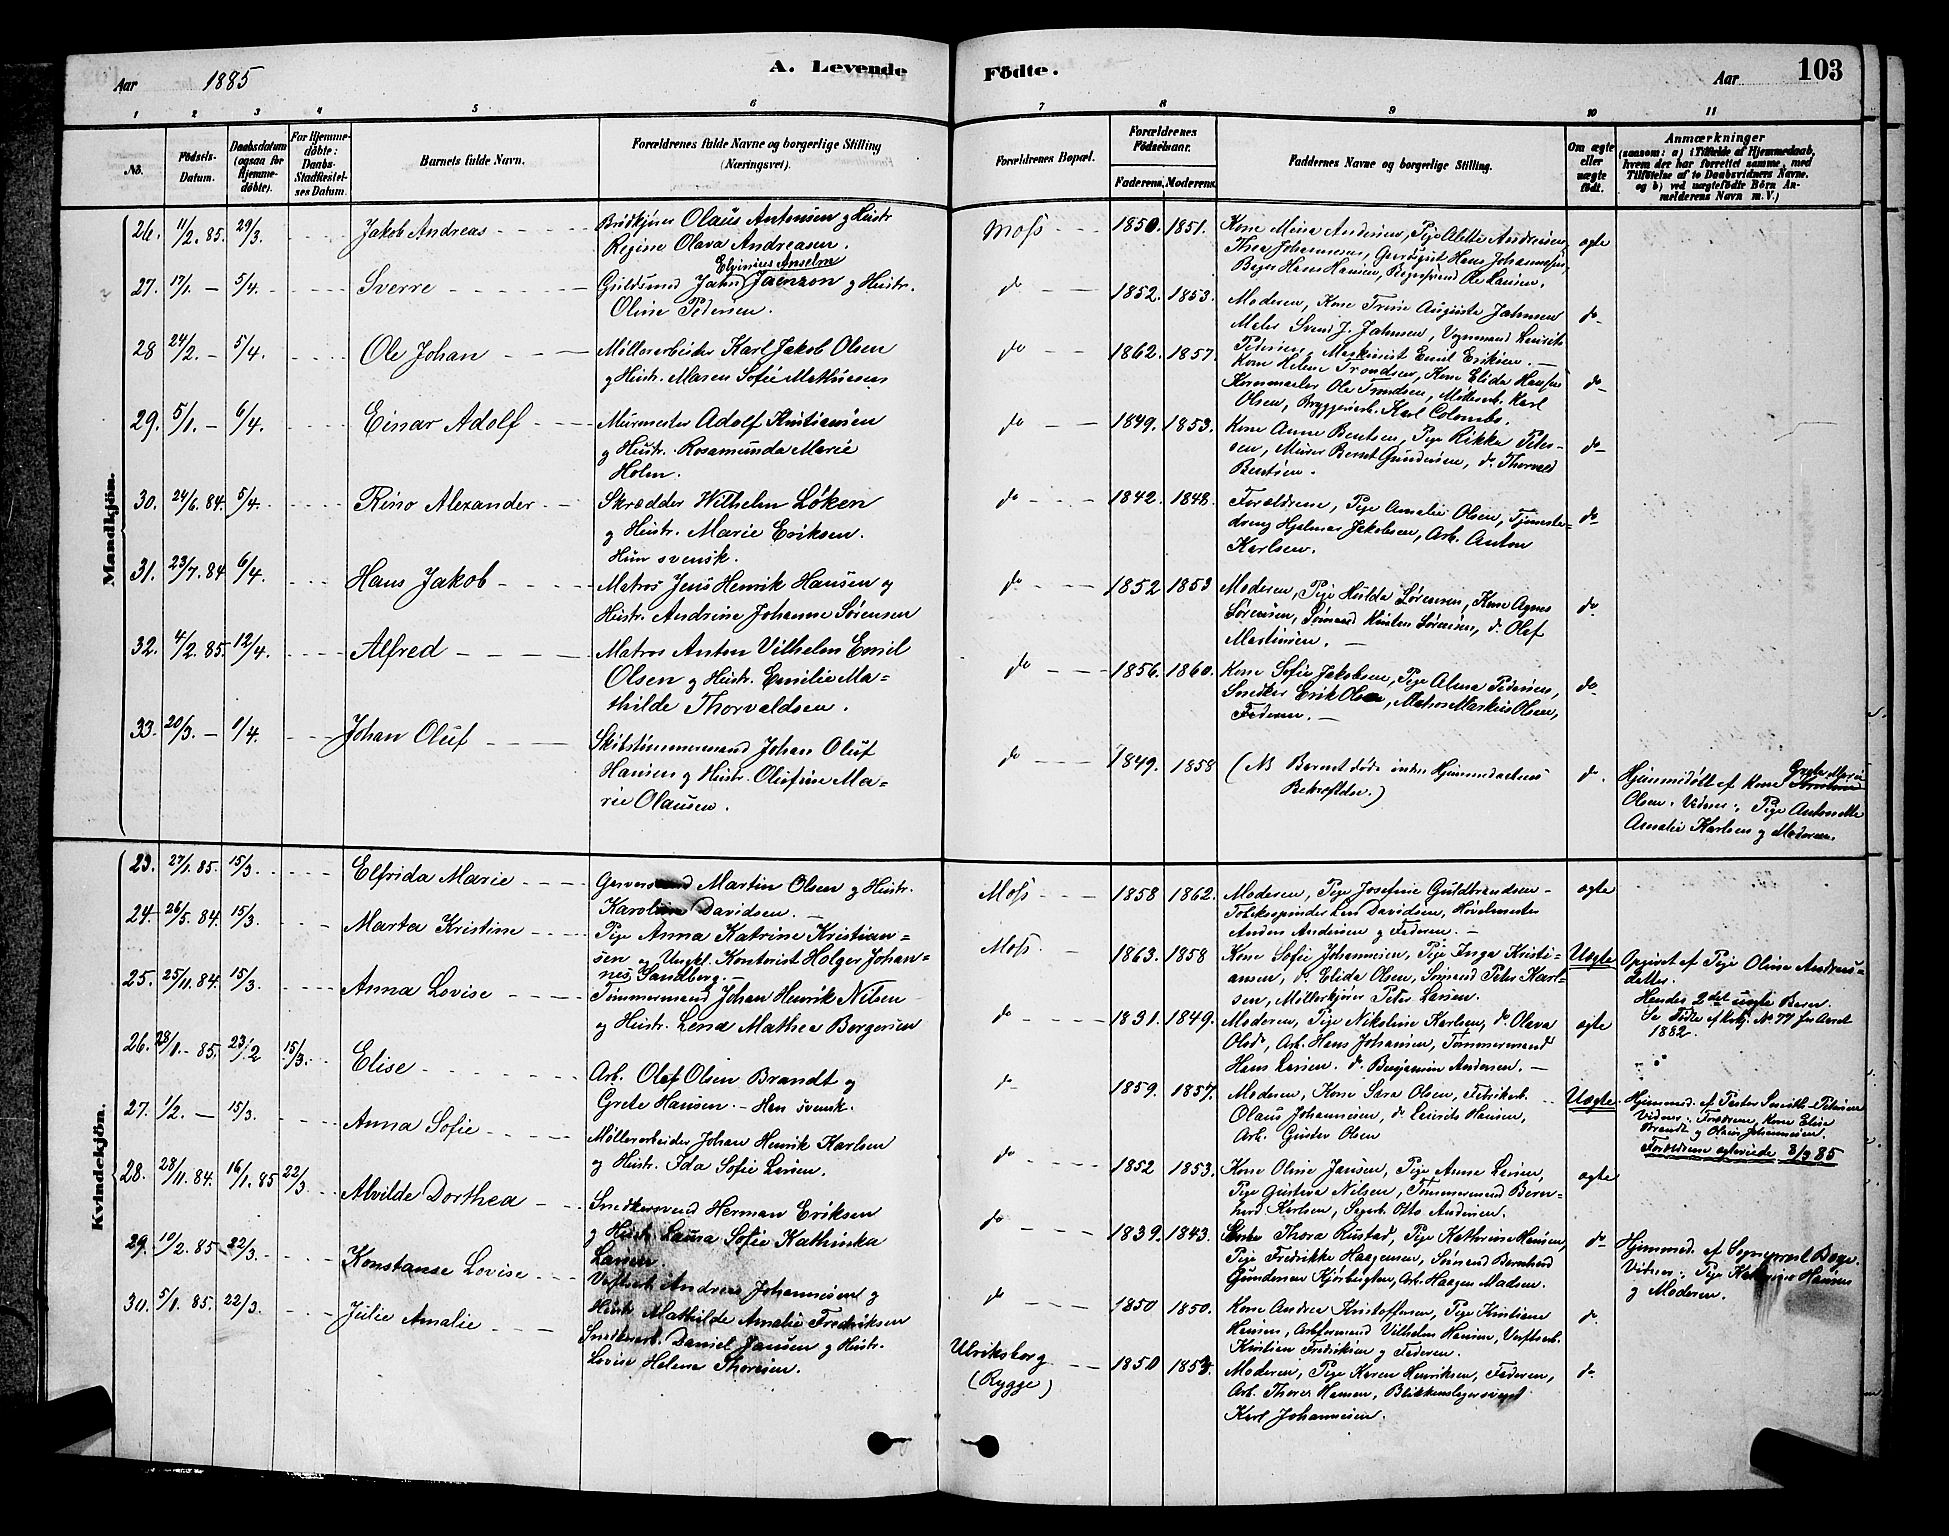 Aar 1885
A. Levende
Födte.
Aar 103
1 2 3 4 5 6 7 8 9 10 11
No.
Födsels-
Datum.
Daabsdatum
(ogsaa for
Hjemme-
döbte).
For Hjemme-
döbte:
Daabs-
Stadfæstel-
ses Datum.
Barnets fulde Navn.
Forældrenes fulde Navne og borgerlige Stilling
(Næringsvei).
Forældrenes Bopæl.
Forældrenes
Födselsaar.
Faderens. Moderens.
Faddernes Navne og borgerlige Stilling.
Om ægte
eller
uægte
født.
Anmærkninger
(saasom: a) i Tilfælde af Hjemmedaab,
hvem der har forrettet samme, med
Tilföielse af to Daabsvidners Navne.
og b) ved uægtefödte Börn An-
melderens Navn m. V.)
Mandkjön.
26. 11/2. 85. 29/3. Jakob Andreas
Brödkjörer Olaus Antonsen g Hustr
Regine Olava Andreasen.
Moss 1850. 1851.
Kone Mina Andersen, Pige Alette Andreasen,
Thea Johannesen, Hans Johannesen,
Bager Hans Hansen, Ole Hansen.
ægte
27. 17/1. – 5/4. Sverre
Elvinius Anselm
Guldsmed Jahn Jaenzon g Hustr.
Oline Pedersen.
do 1852. 1853.
Moderen, Kone Trine Auguste Jahnsen
Maler Svend J. Jahnsen, Vognmand Lauritz
Pedersen, Maskinist Emil Eriksen.
do
28 24/2. – 5/4. Ole Johan
Möllerarbeider Karl Jakob Olsen
g Hustr. Maren Sofie Mathisen
do 1862. 1857.
Kone Helene Trondsen, Kone Elida Hansen
Kornmaaler Ole Trondsen, Möllerarb. Karl
Olsen, Bryggeriarb. Karl Colombo.
do
29. 5/1. – 6/4. Einar Adolf
Murmester Adolf Kristiansen
g Hustr. Rosamunda Marie
Holm.
do 1849. 1853.
Kone Anne Bentsen, Pige Rikka Peter-
sen, Murer Bernt Gundersen, do. Thorvald
Bentsen.
do
30. 24/6. 84. 5/4. Rino Alexander
Skrædder Wilhelm Löken
g Hustr. Marie Eriksen.
Hun svensk.
do 1842. 1848.
Forældrene, Pige Amalie Olsen, Tjeneste-
dreng Hjalmar Jakobsen, Arb. Anton
Karlsen.
do
31. 23/7. 84 6/4. Hans Jakob
Matros Jens Henrik Hansen g
Hustr. Andrine Johanne Sörensen
do 1852 1853
Moderen, Pige Hulda Sörensen, Kone Agnes
Sörensen, Sömand Kristen Sörensen, do. Olaf
Martinsen.
do
32. 4/2. 85. 12/4. Alfred
Matros Anton Vilhelm Emil
Olsen g Hustr. Emilie Ma=
thilde Thorvaldsen.
do 1856. 1860.
Kone Sofie Jakobsen, Pige Alma Pedersen,
Snedker Erik Olsen, Matros Markus Olsen,
Faderen.
do
33. 20/3. – 1/4. Johan Oluf
Skibstömmermand Johan Oluf
Hansen g Hustr. Olufine Ma=
rie Olausen.
do 1849. 1858
(NB Barnet döde inden Hjemmedaabens
Bekræftelse.)
do.
Hjemmedöbt af Kone Grete Marie
Olsen. Vidner: Pige Antonette
Amalie Karlsen g Moderen.
Kvindekjön.
23. 27/1. 85. 15/3. Elfrida Marie
Garversvend Martin Olsen g Hustr.
Karoline Davidsen.
Moss 1858 1862.
Moderen, Pige Josefine Guldbrandsen
Tobakspinder Davidsen, Hövelmester
Anders Andersen g Faderen.
ægte
24. 26/5. 84. 15/3. Marta Kristine
Pige Anna Katrine Kristian=
sen og Ungkl. Kontorist Holger Johan=
nes Sandberg.
Moss. 1863. 1858
Kone Sofie Johannesen, Pige Inga Kristi-
ansen, do. Elida Olsen, Sömand Peter Karl-
sen, Möllerkjörer Peter Larsen.
Uægte
Opgivet af Pige Oline Andreas-
datter.
Hendes 2det uægte Barn.
Se Födte No 77 for Aaret
1882.
25. 25/11. 84. 15/3. Anna Lovise
Tömmermand Johan Henrik Nilsen
g Hustr. Lena Mathea Borgersen
do 1831. 1849.
Moderen, Pige Nikoline Karlsen, do. Olava
Olsd., Arb. Hans Johansen, Tömmermand
Hans Larsen. do. Benjamin Andersen.
ægte
26. 28/1. – 85. 23/2 15/3. Elise
Arb. Olaf Olsen Brandt g
Grete Hansen. – Han svensk.
do 1859. 1857.
Moderen, Kone Sara Olsen, Fabrikarb.
Olaus Johannesen, do Laurits Hansen,
Arb. Gustav Olsen
Uægte.
Hjemmed. af Pastor
Vidner: Kone Elise
Brandt g Johannesen.
Forældrene ægteviede 8/3 85
27. 1/2. – 15/3. Anna Sofie
Möllerarbeider Johan Henrik Karlsen
g Hustr. Ida Sofie Larsen.
do 1852 1853.
Kone Oline Jansen, Pige Anna Larsen,
Pige Gustava Nilsen, Tömmermand Bern=
hard Karlsen, Sagarb. Otto Andersen.
ægte
28. 28/11. 84. 16/1. 85 22/3 Alvilde Dorthea
Snedkersvend Herman Eriksen
g Hustr. Laura Sofie Kathinka
Larsen.
do 1839. 1843.
Enke Thora Rustad, Pige Kathrine Hansen,
Pige Fredrikke Haagensen, Sömand Bernhard
Gundersen Kjörbigten, Arb. Haagen Madsen.
do
Hjemmed. af Sognepræst Bøge.
Vidner: Pige Kathrine Hansen
g Moderen.
29. 19/2. 85 22/3. Konstanse Lovise
Værftsarb. Andreas Johannesen g
Hustr. Mathilde Amalie Fredriksen
do 1850 1850.
Kone Andrea Kristoffersen, Pige Kristiane
Hansen, Arbformand Vilhelm Hansen, Værftsarb.
Kristian Fredriksen g Faderen.
do.
30. 5/1. 85. 22/3. Julie Amalie
Snedkerarb. Daniel Jansen g Hustr.
Lovise Helena Thoresen.
Ulriksborg
(Rygge)
1850 1853.
Moderen, Pige Karen Henriksen, Faderen,
Arb. Thorer Hansen, Blikkenslagersvend
Karl Johannesen.
do.